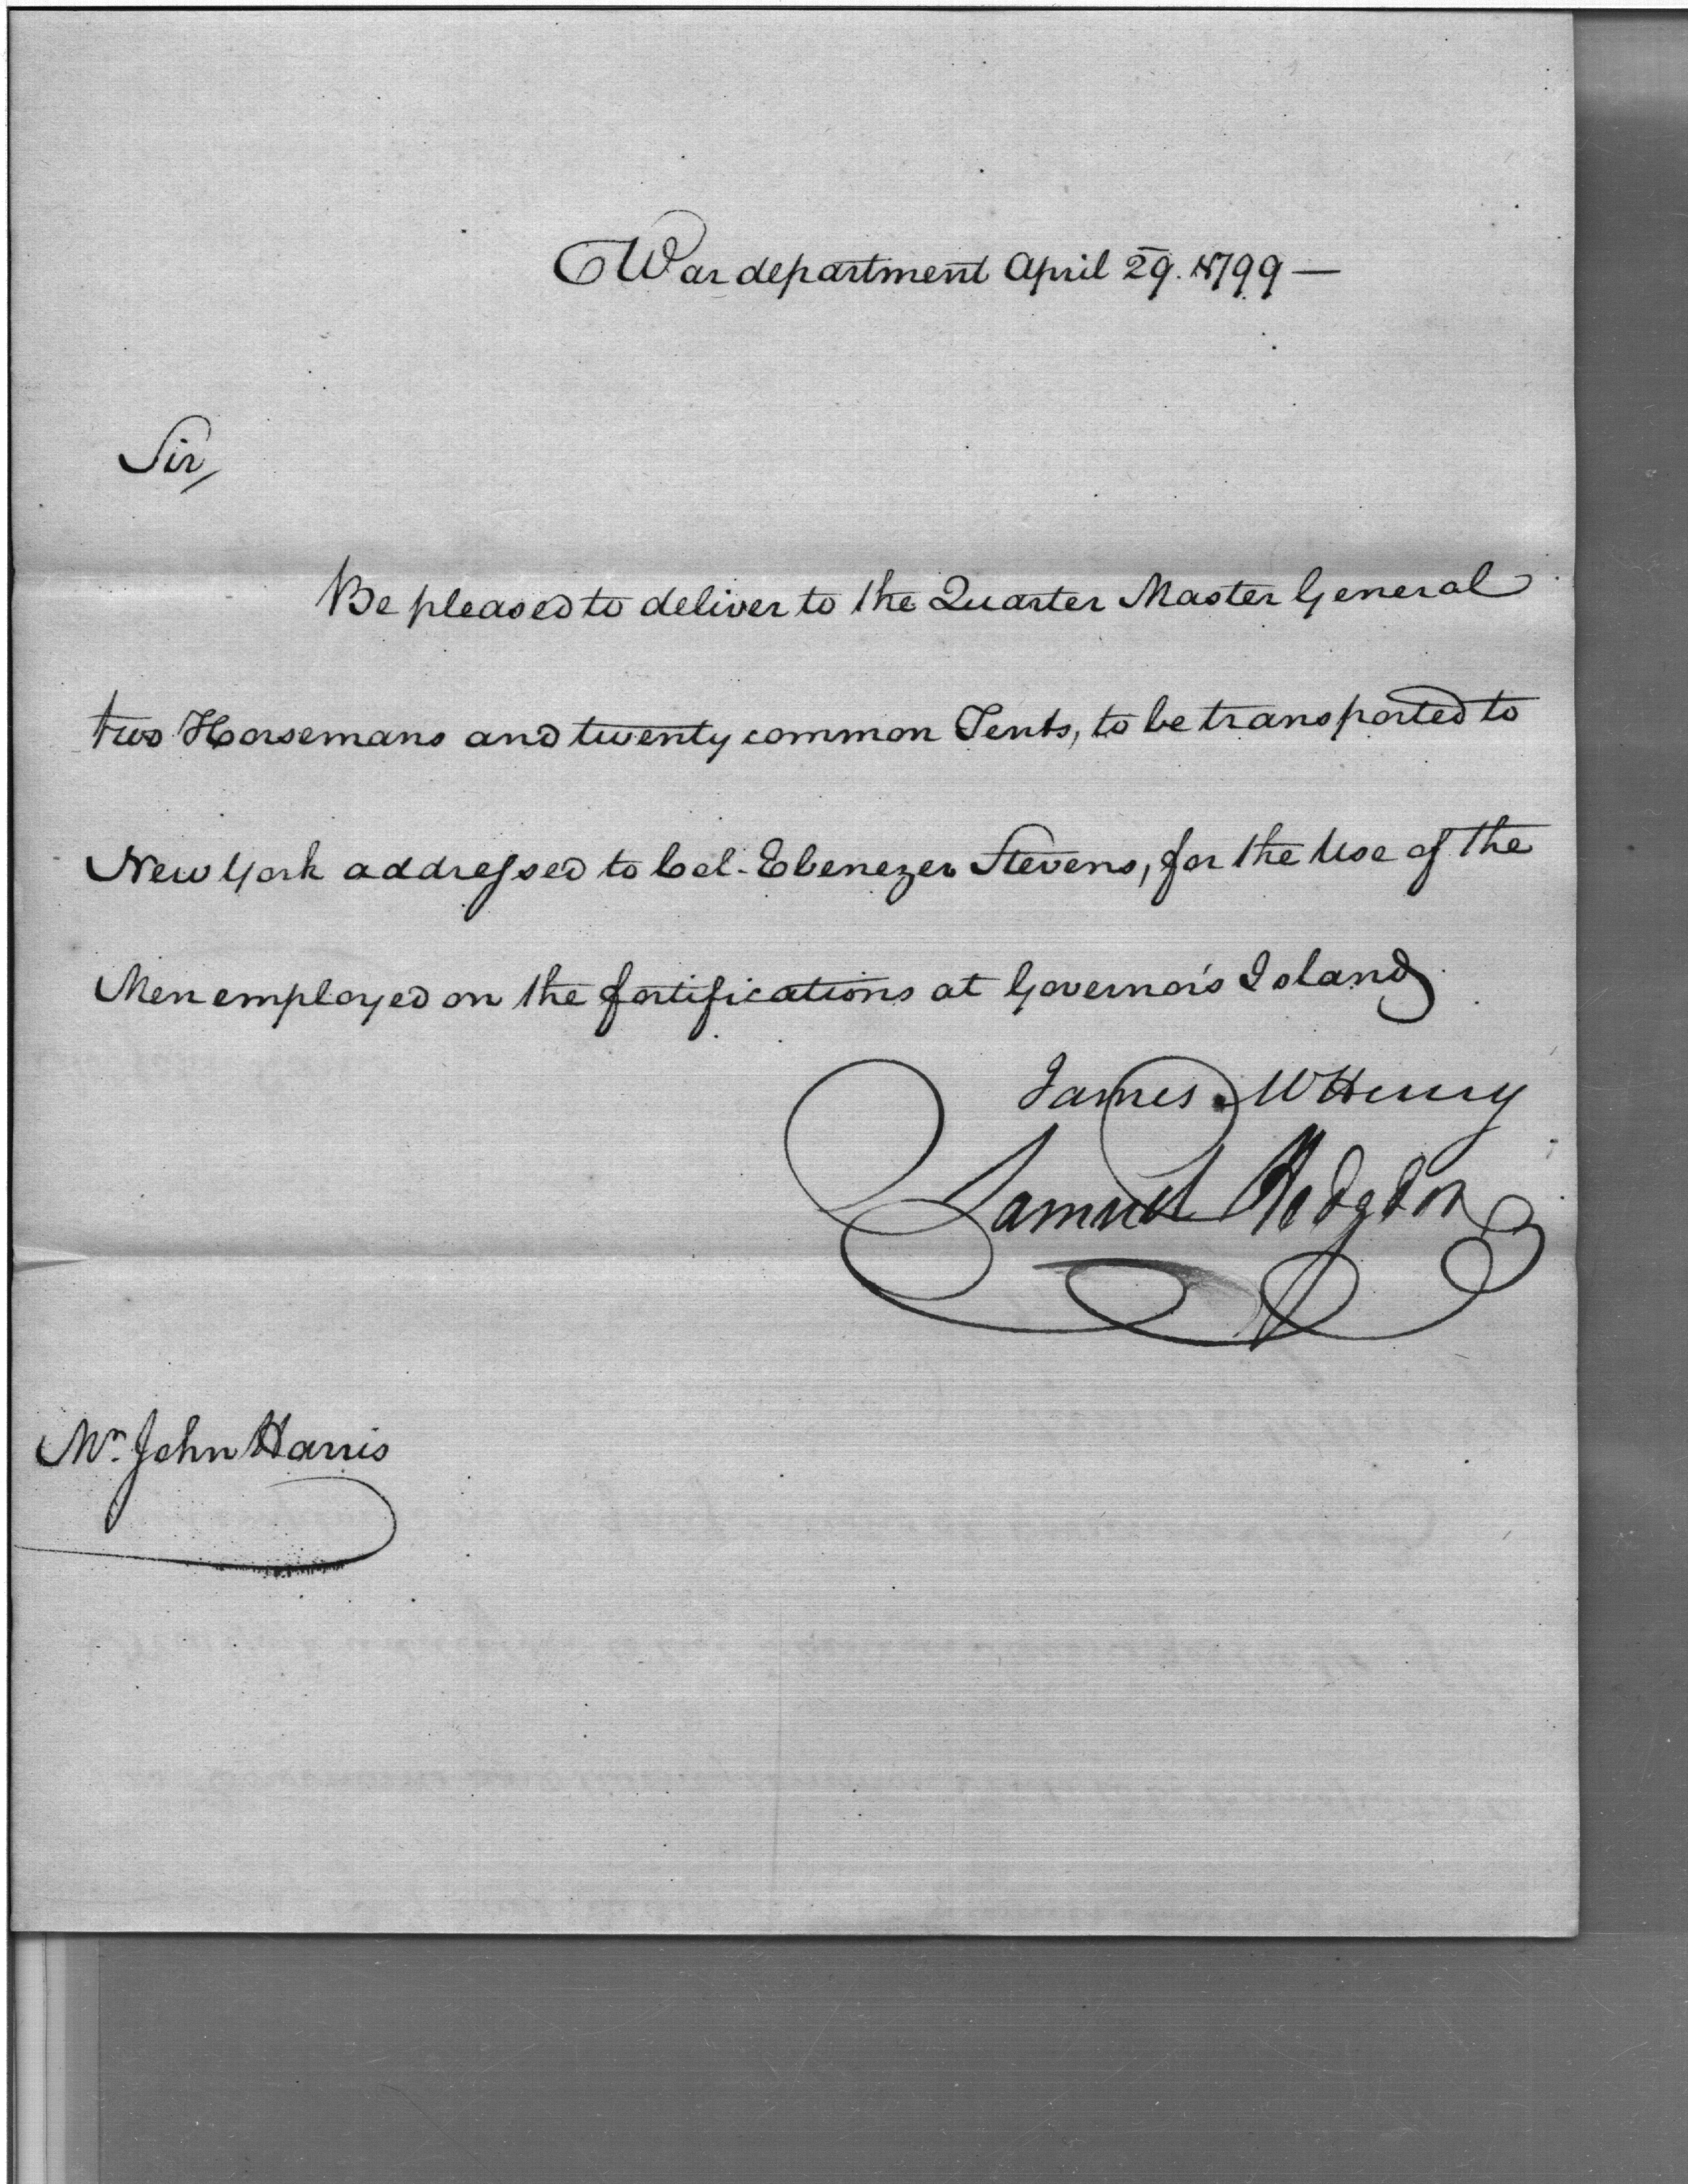 War department April 29. 1799 —
Sir,
Be pleased to deliver to the Quarter Master General
two Horsemans and twenty common Tents, to be transported to
New York addressed to Col. Ebenezer Stevens, for the Use of the
Men employed on the fortifications at Governor's Island
James McHenry
Samuel Hodgdon
Mr. John Harris